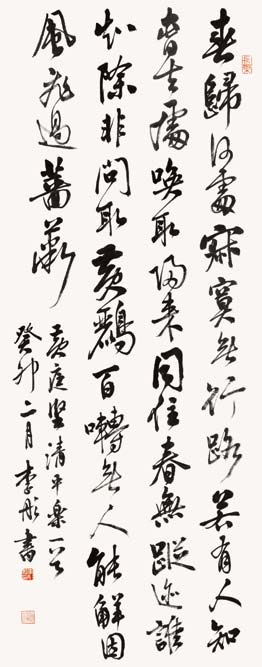 春歸何處寂寞无行路若有人知
春去處喚取歸來同住春無蹤迹誰
知除非問取黃鸝百囀无人能解因
風飛過薔薇
黃庭堅清平樂一首
癸卯二月李彤書